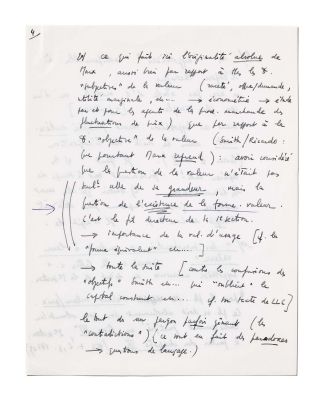 4
ce qui fait ici l'originalité absolue de
Marx, aussi bien par rapport à tous les th.
"subjectives" de la valeur (rareté, offre/demande,
utilité marginale, etc... → économétrie →
pour les agents de la prod. marchande des
fluctuations de prix) que par rapport à la
th. "objective" de la valeur (Smith/Ricardo :
que pourtant Marx reprend) : avoir considéré
que la question de la valeur n'était pas
celle de sa grandeur, mais la
question de l'existence de la forme-valeur.
C'est le fil directeur de la 1e section.
→ importance de la val. d'usage [cf. la
"forme équivalent" etc... ]
→ toute la suite [contre les confusions de
Smith etc... qui "oublie" le
capital constant etc... cf. ton texte de LLC]
le tout dans un jargon parfois gênant (les
"contradictions") (ce sont en fait des paradoxes
→ questions de langage.)